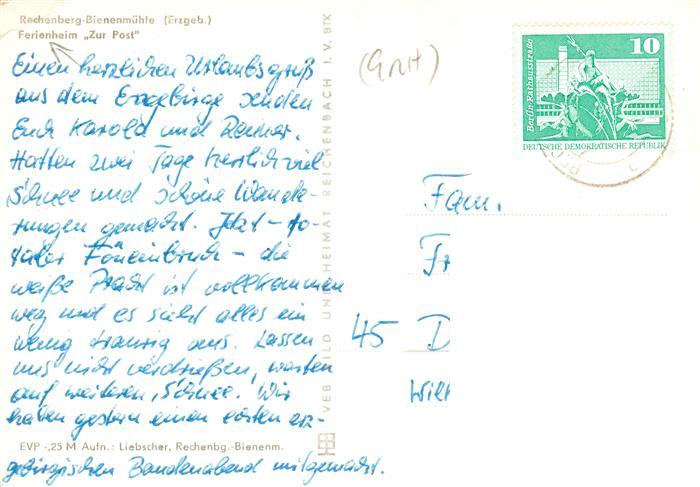 Rechenberg-Bienenmühle (Erzgeb.)
Ferienheim „Zur Post"
Einen herzlichen Urlaubsgruß
aus dem Erzgebirge senden
Euch Karola und Reiner.
Hatten zwei Tage herrlich viel
Schnee und schöne Wande-
rungen gemacht. Jetzt - to-
taler Föneinbruch - die
weiße Pracht ist vollkommen
weg und es sieht alles ein
wenig traurig aus. Lassen
uns nicht verdrießen, warten
auf weiteren Schnee. Wir
haben gestern einen echten erz-
gebirgischen Baudenabend mitgemacht.
EVP -,25 M Aufn.: Liebscher, Rechenbg.-Bienenm.
VEB BILD UND HEIMAT REICHENBACH I. V. BTK
(9NH)
Berlin, Rathausstraße
10
DEUTSCHE DEMOKRATISCHE REPUBLIK
Fam.
Fr
45 D
Will